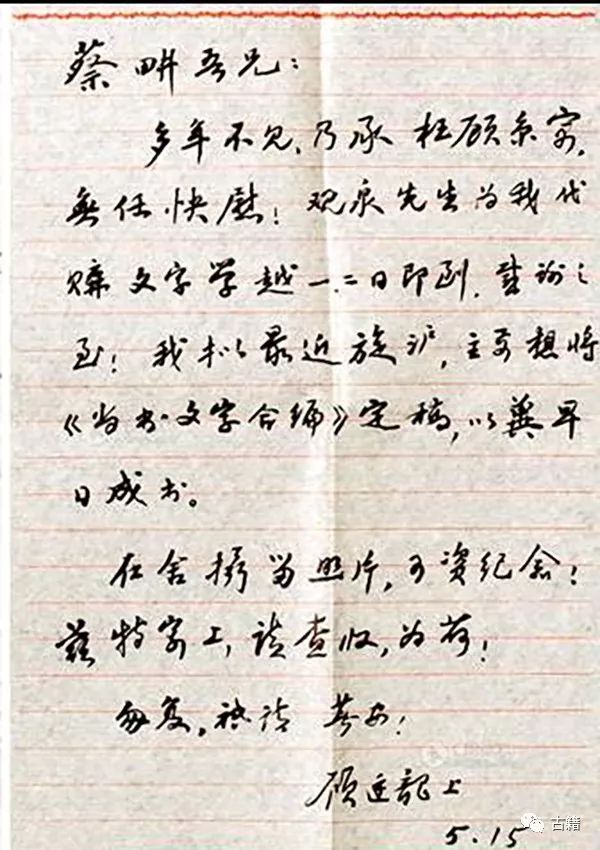 蔡畊吾兄：
多年不见，乃承 枉顾京寓，
無任快慰！观泉先生为我代
购文字学越一、二日即到，甚谢之
至！我拟最近旋沪，主要想将
《尚书文字合编》定稿，以冀早
日成书。
在舍摄留照片，可资纪念！
兹特寄上，请查收，为荷！
匆复，祗请 著安！
顾廷龍上
5.15
古籍